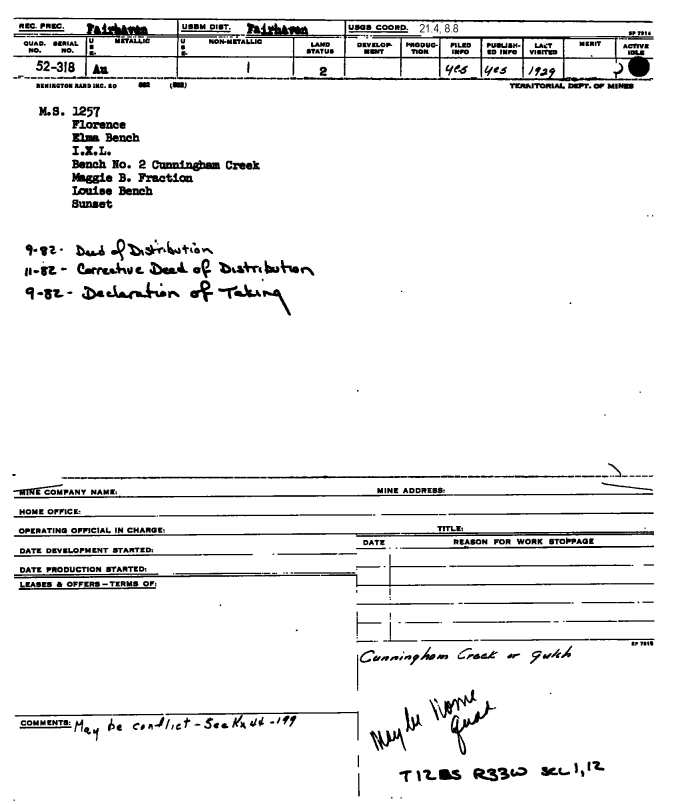 REC. PREC. Fairhaven USBM DIST. Fairhaven USGS COORD. 21.4, 8.8
SP 7914
QUAD. NO. SERIAL NO. USE- METALLIC USE- NON-METALLIC LAND STATUS DEVELOP-MENT PRODUC-TION FILED INFO PUBLISH-ED INFO LAST VISITED MERIT ACTIVE IDLE
52-318 Au 1 2 yes yes 1929
REMINGTON RAND INC. TERRITORIAL DEPT. OF MINES
M.S. 1257
Florence
Elma Bench
I.X.L.
Bench No. 2 Cunningham Creek
Maggie B. Fraction
Louise Bench
Sunset
9-82- Deed of Distribution
11-82- Corrective Deed of Distribution
9-82- Declaration of Taking
MINE COMPANY NAME: MINE ADDRESS:
HOME OFFICE:
OPERATING OFFICIAL IN CHARGE: TITLE:
DATE REASON FOR WORK STOPPAGE
DATE DEVELOPMENT STARTED:
DATE PRODUCTION STARTED:
LEASES & OFFERS-TERMS OF:
SP 7915
Cunningham Creek or gulch
COMMENTS: May be conflict - See Kx 44-199
May be Nome
quad
T12S R33W sec 1,12